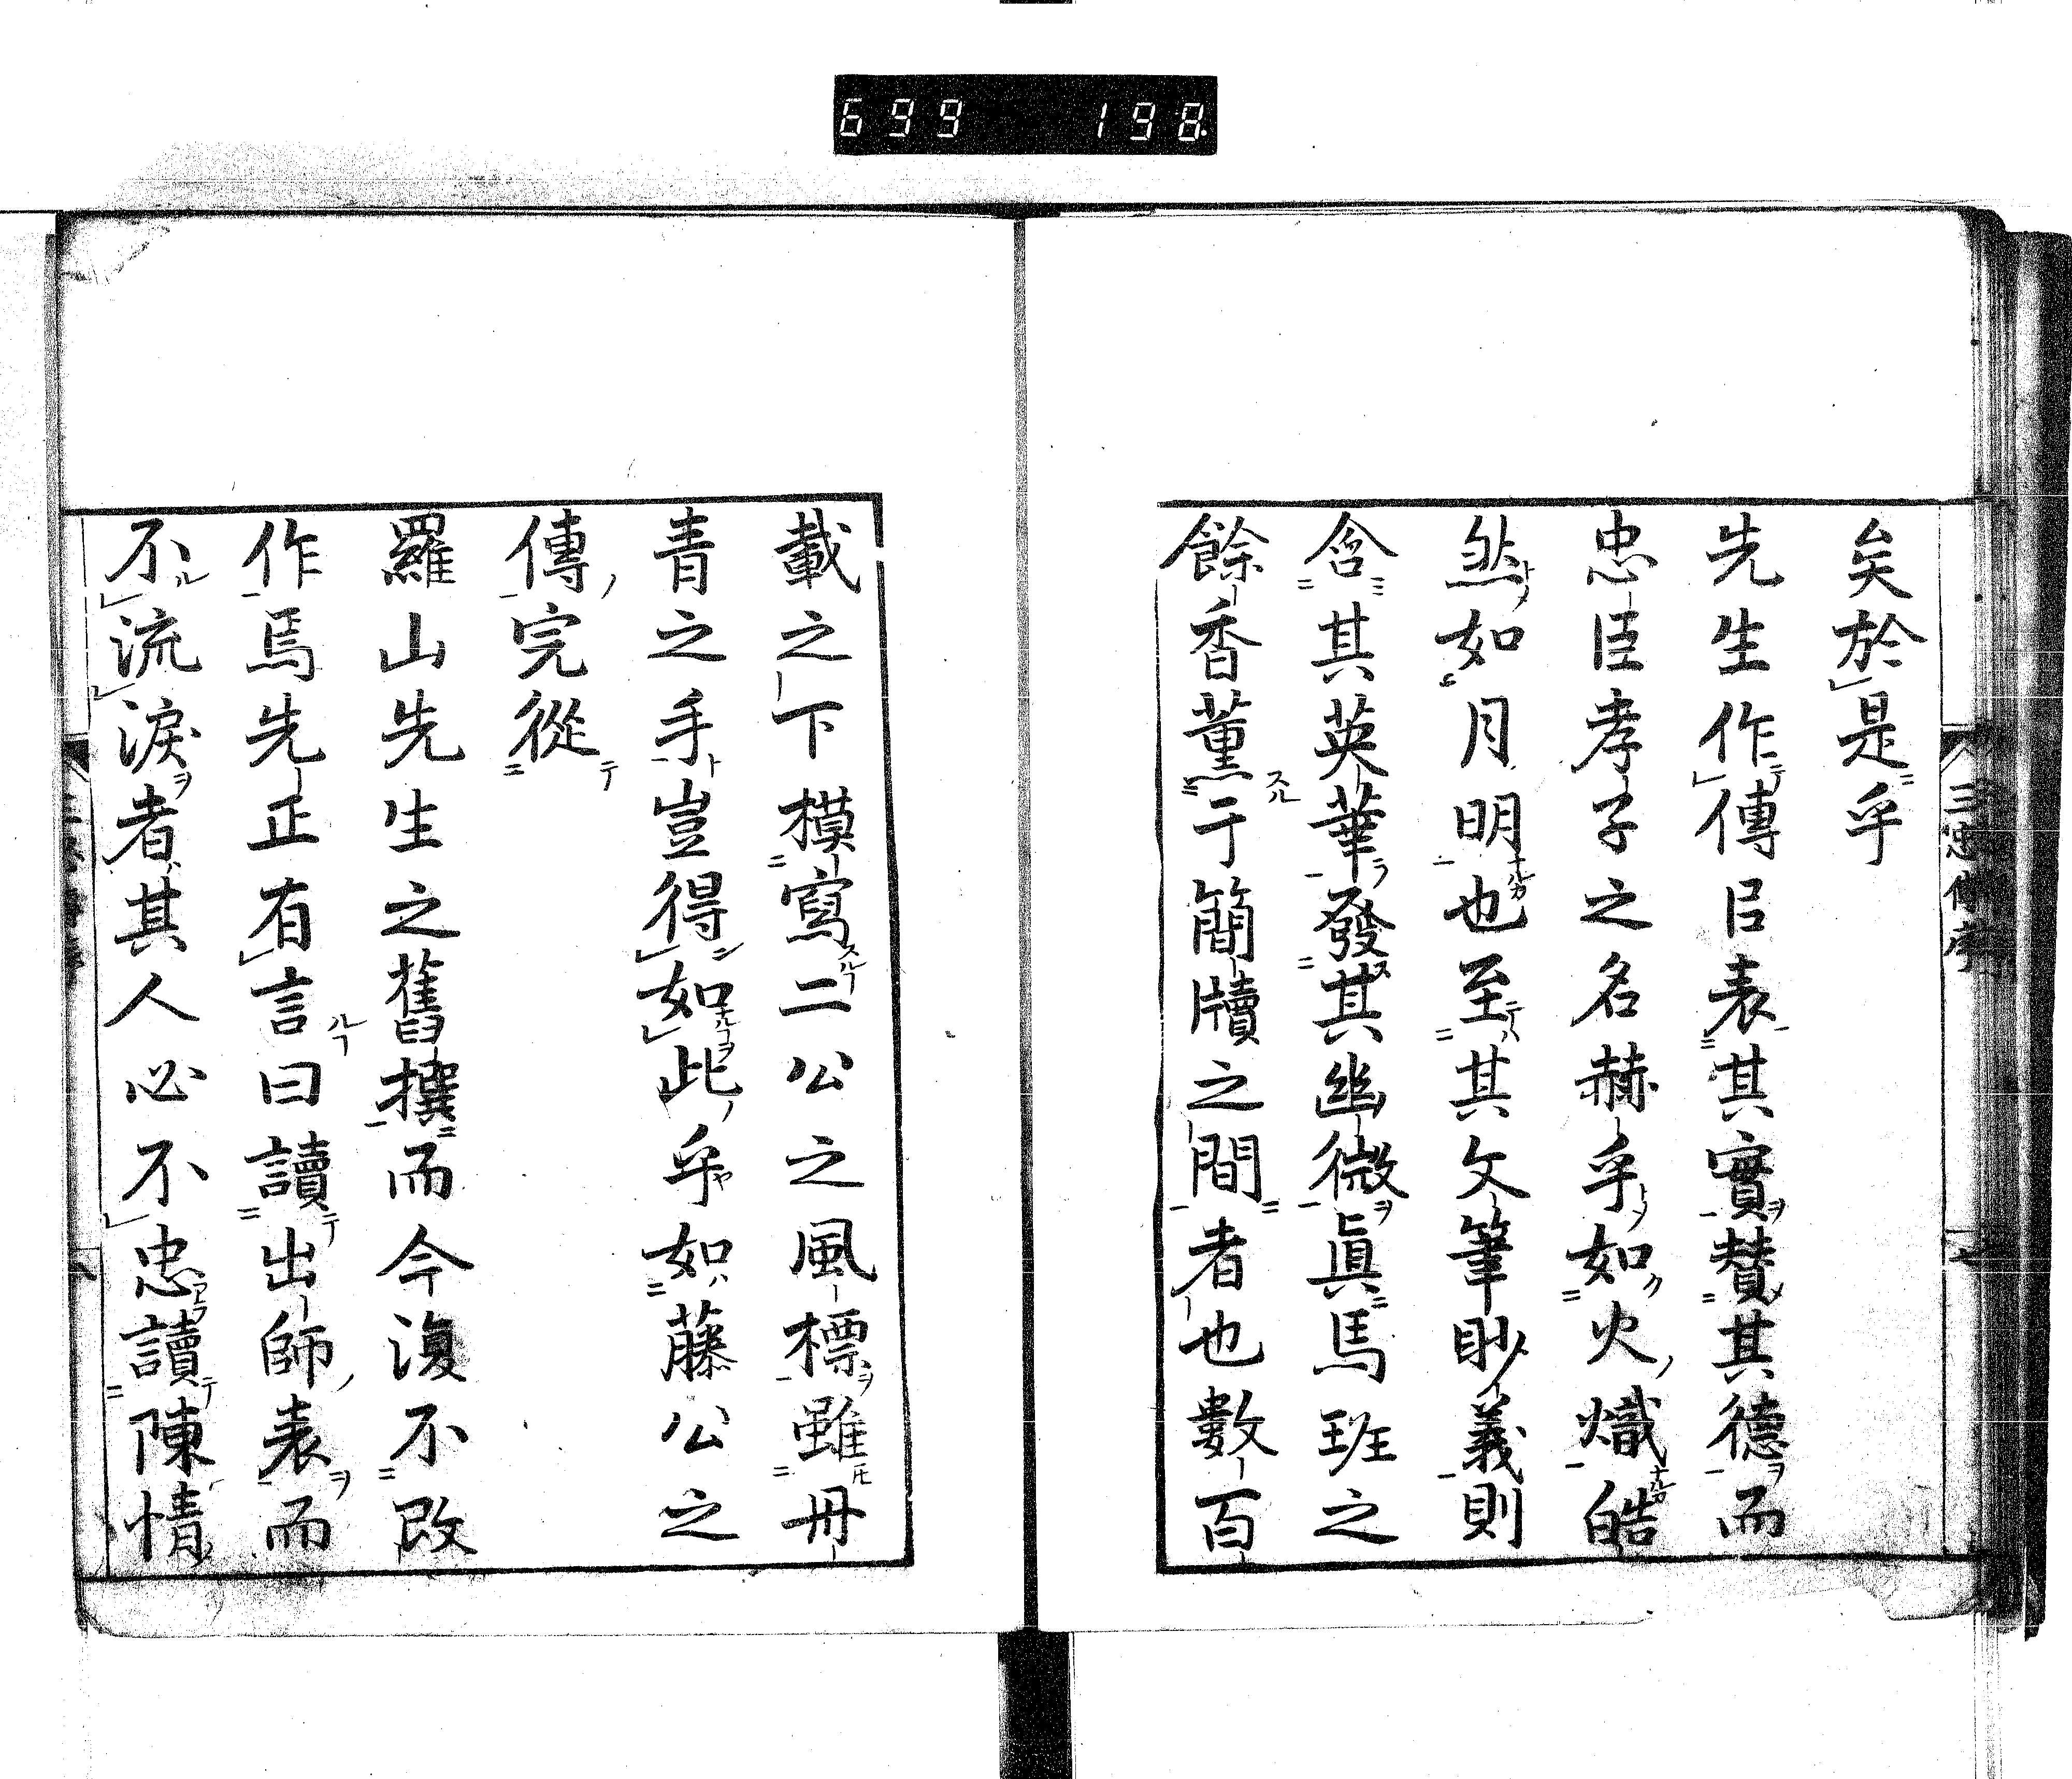 699 198
三忠傳序
矣於是乎
先生作傳㠯表其實賛其德而
忠臣孝子之名赫乎如火熾皓
然如月明也至其文筆眇義則
含其英華發其幽微眞馬班之
餘香薰于簡牘之間者也數百
載之下模寫二公之風標雖毌
青之手豈得如此乎如藤公之
傳完從
羅山先生之舊撰而今復不改
作焉先正有言曰讀出師表而
不流涙者其人必不忠讀陳情